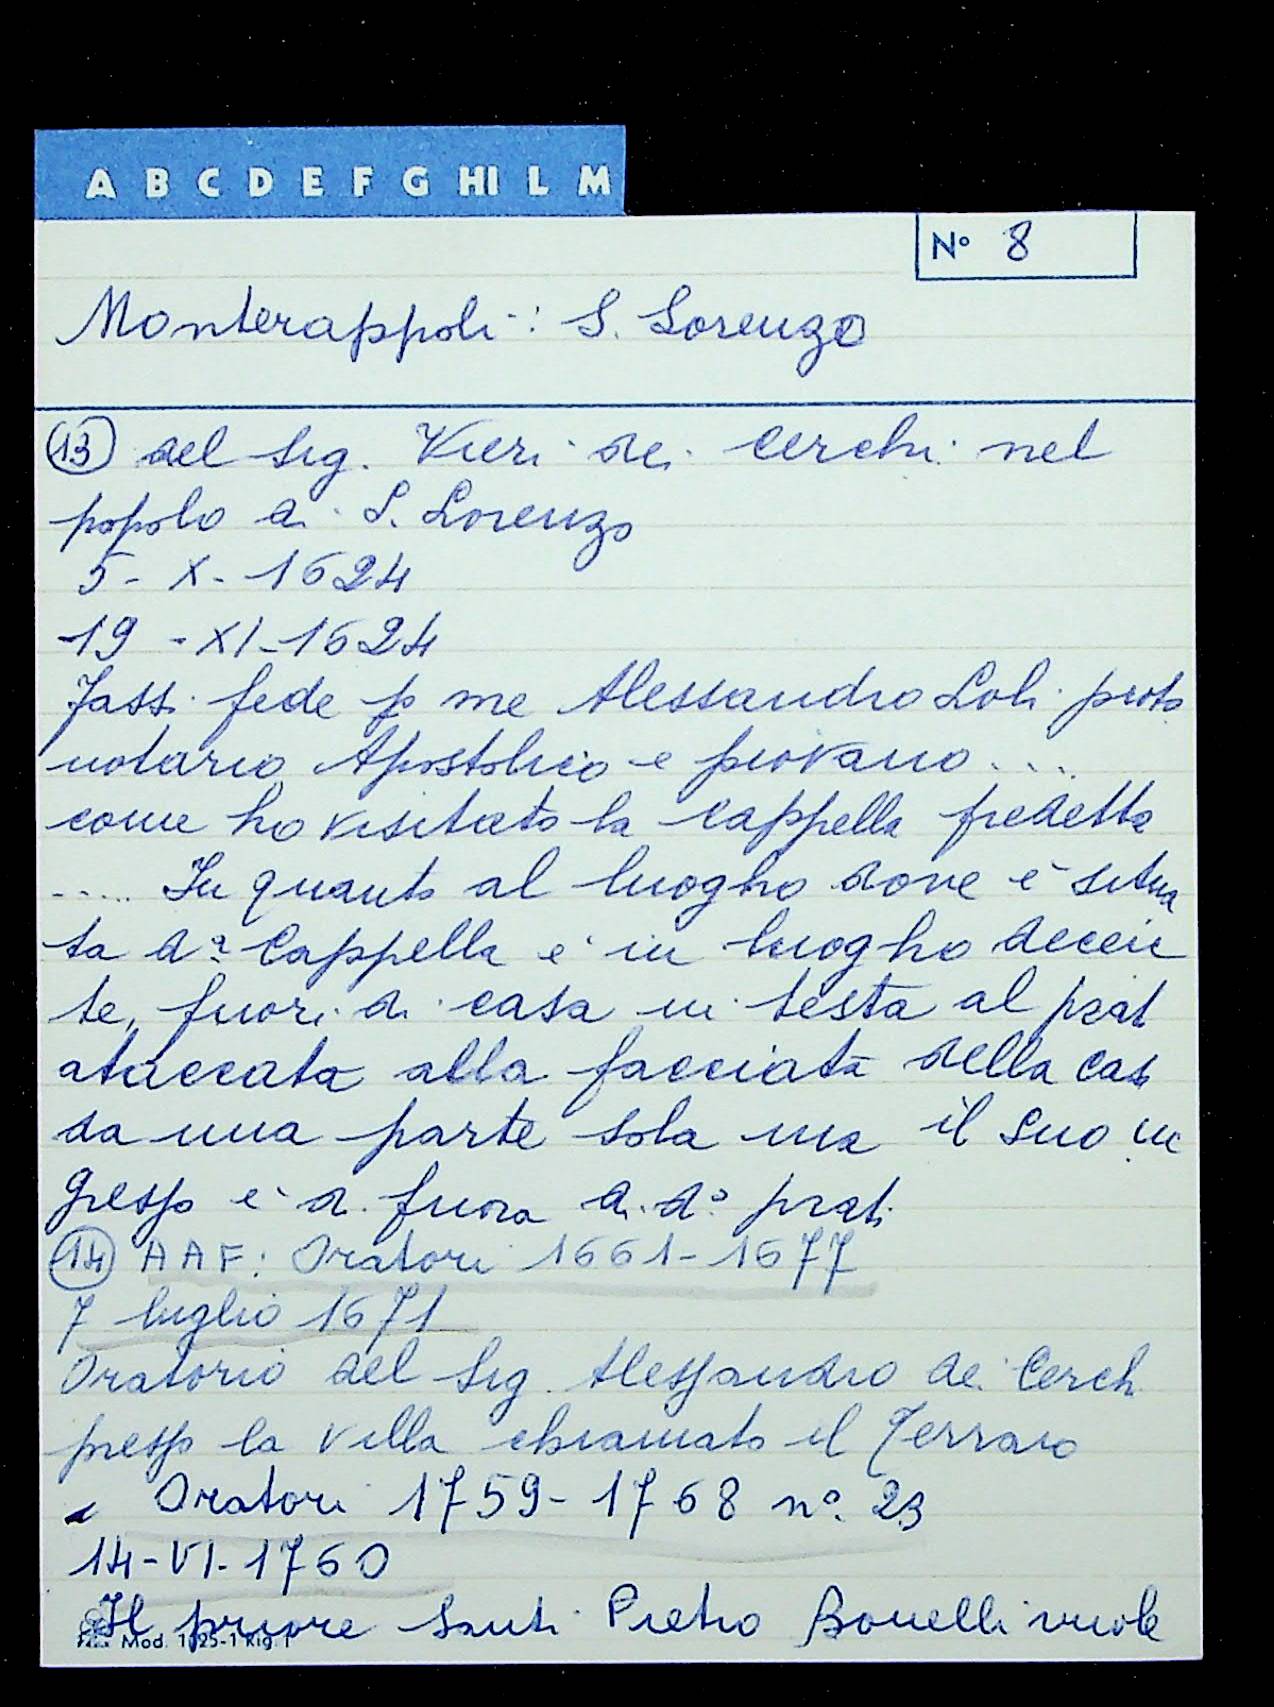 A B C D E F G HI L M
N° 8
Monterappoli: S. Lorenzo
13 del Sig. Vieri dei Cerchi nel
popolo di S. Lorenzo
5 - X - 1624
19 - XI - 1624
Fassi fede p me Alessandro Loli proto
notario Apostolico e piovano ....
come ho visitato la cappella predetta
..... In quanto al luogho dove è situa
ta d.a Cappella è in luogho decen
te, fuori di casa in testa al prat
ataccata alla facciata della cas
da una parte sola ma il suo in
gresso è di fuora di d.o prat.
14 AAF: Oratori 1661-1677
7 luglio 1671
Oratorio del Sig. Alessandro de Cerch
presso la villa chiamato il Terraio
Oratori 1759-1768 n° 23
14-VI-1760
Il priore Santi Pietro Bonelli vuole
Mod. 1025-1 Rig. 1